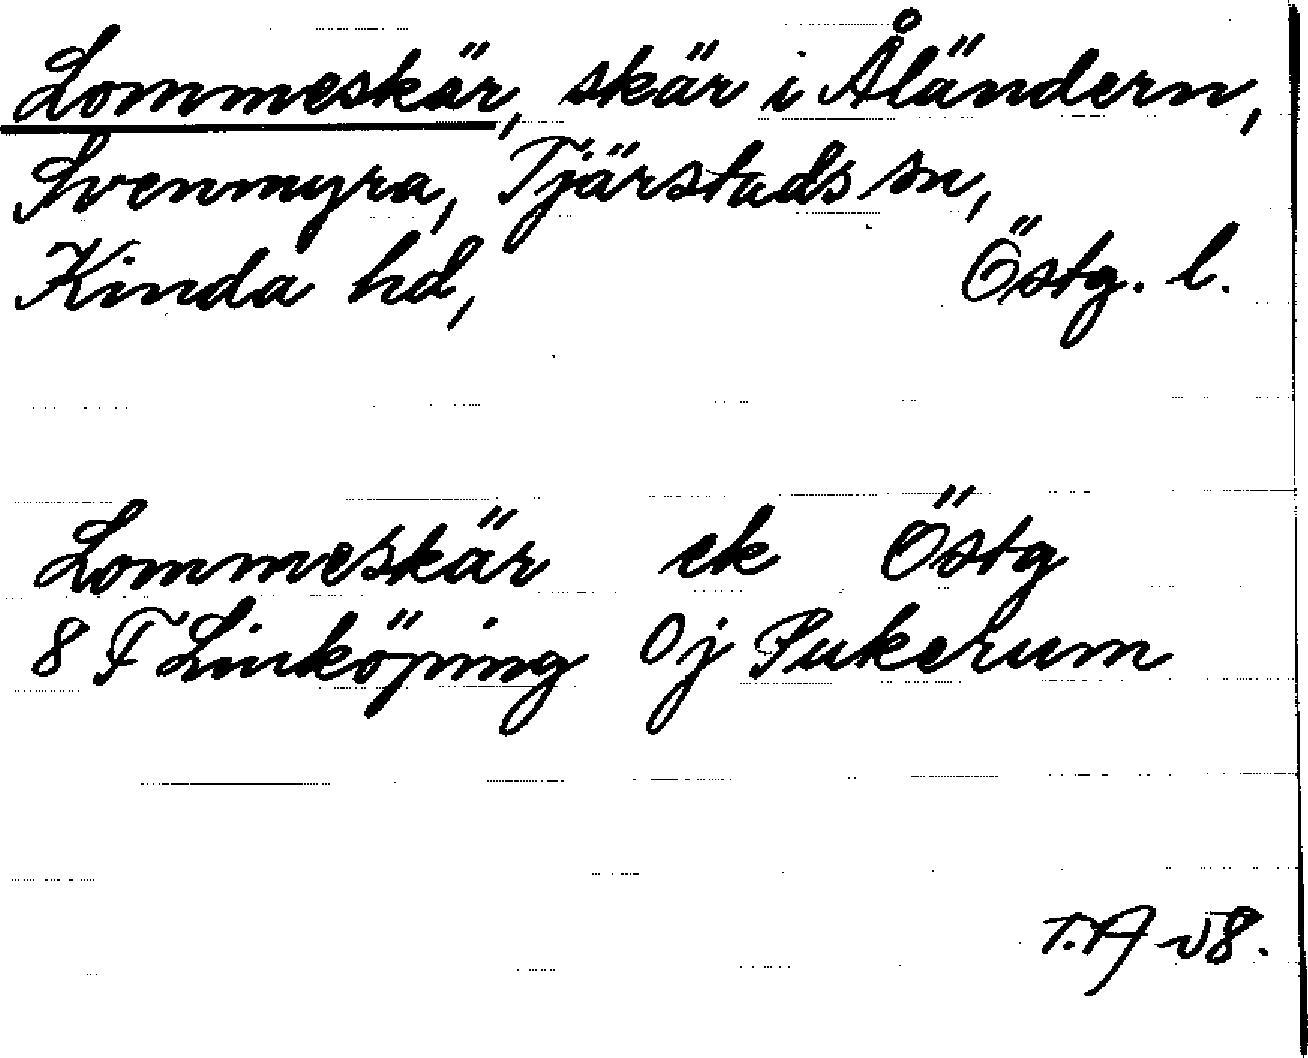 Lommeskär, skär i Åländern,
Svenmyra, Tjärstads sn,
Kinda hd, Östg. l.
Lommeskär ek Östg
8 F Linköping 0j Pukerum
T.A -58.